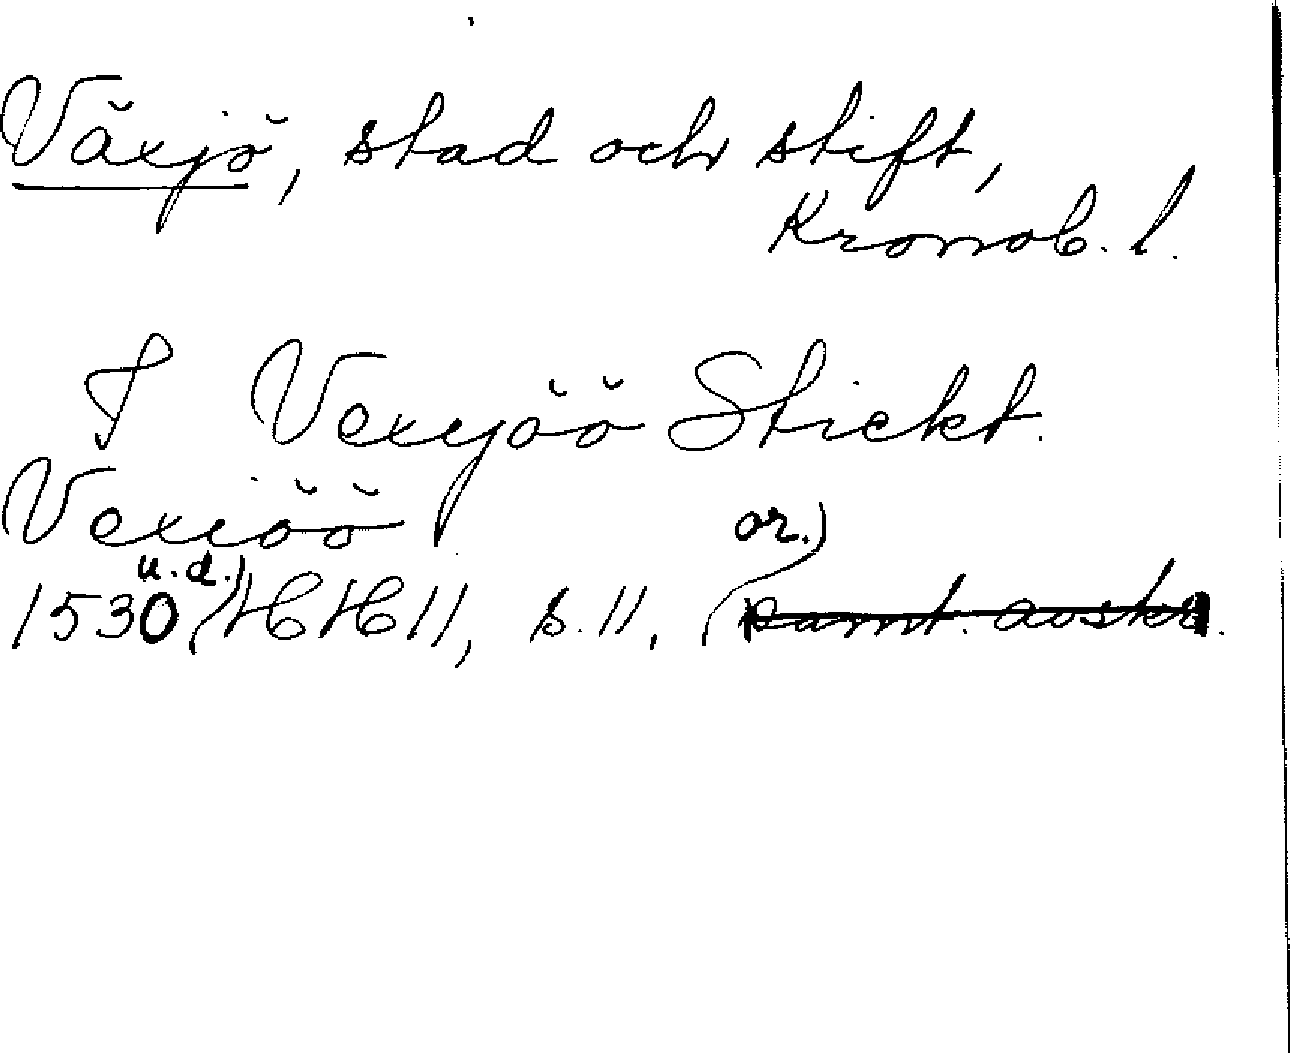 Växjö, stad och stift,
Kronob. l.
J Vexyöö Stickt.
Vexiöö
1530 u.d.) (HH 11, s. 11, or.) (samt. avskr.